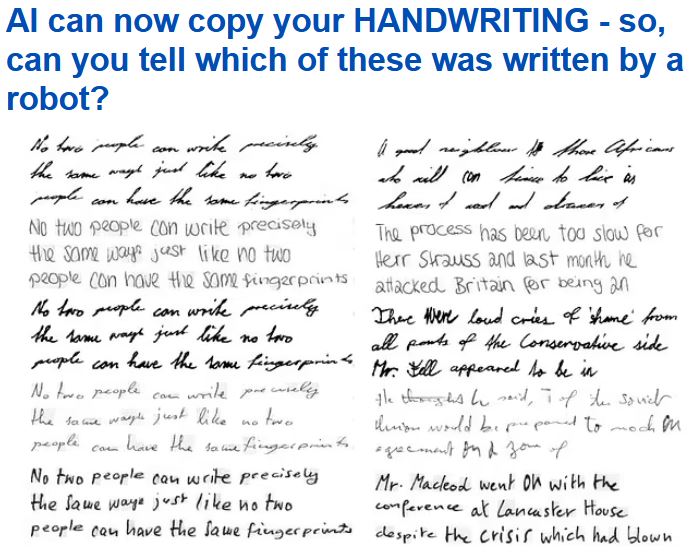 AI can now copy your HANDWRITING - so,
can you tell which of these was written by a
robot?
No two people can write precisely
the same ways just like no two
people can have the same fingerprints
No two people can write precisely
the same ways just like no two
people can have the same fingerprints
No two people can write precisely
the same ways just like no two
people can have the same fingerprints
No two people can write precisely
the same ways just like no two
people can have the same fingerprints
No two people can write precisely
the same ways just like no two
people can have the same fingerprints
A good neighbour to those Africans
who will to live in
of need and of
The process has been too slow for
Herr Strauss and last month he
attacked Britain for being an
There were loud cries of 'shame' from
all parts of the Conservative side
Mr. Fell appeared to be in
he said, of the Soviet
Union would be prepared to reach an
agreement on a zone of
Mr. Macleod went on with the
conference at Lancaster House
despite the crisis which had blown